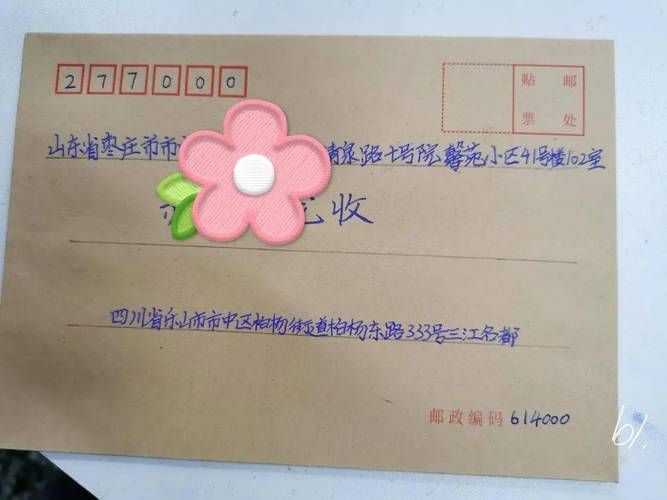 277000
贴 邮
票 处
山东省枣庄市市 清泉路十号院馨苑小区41号楼102室
收
四川省乐山市市中区柏杨街道柏杨东路333号三江名都
邮政编码 614000